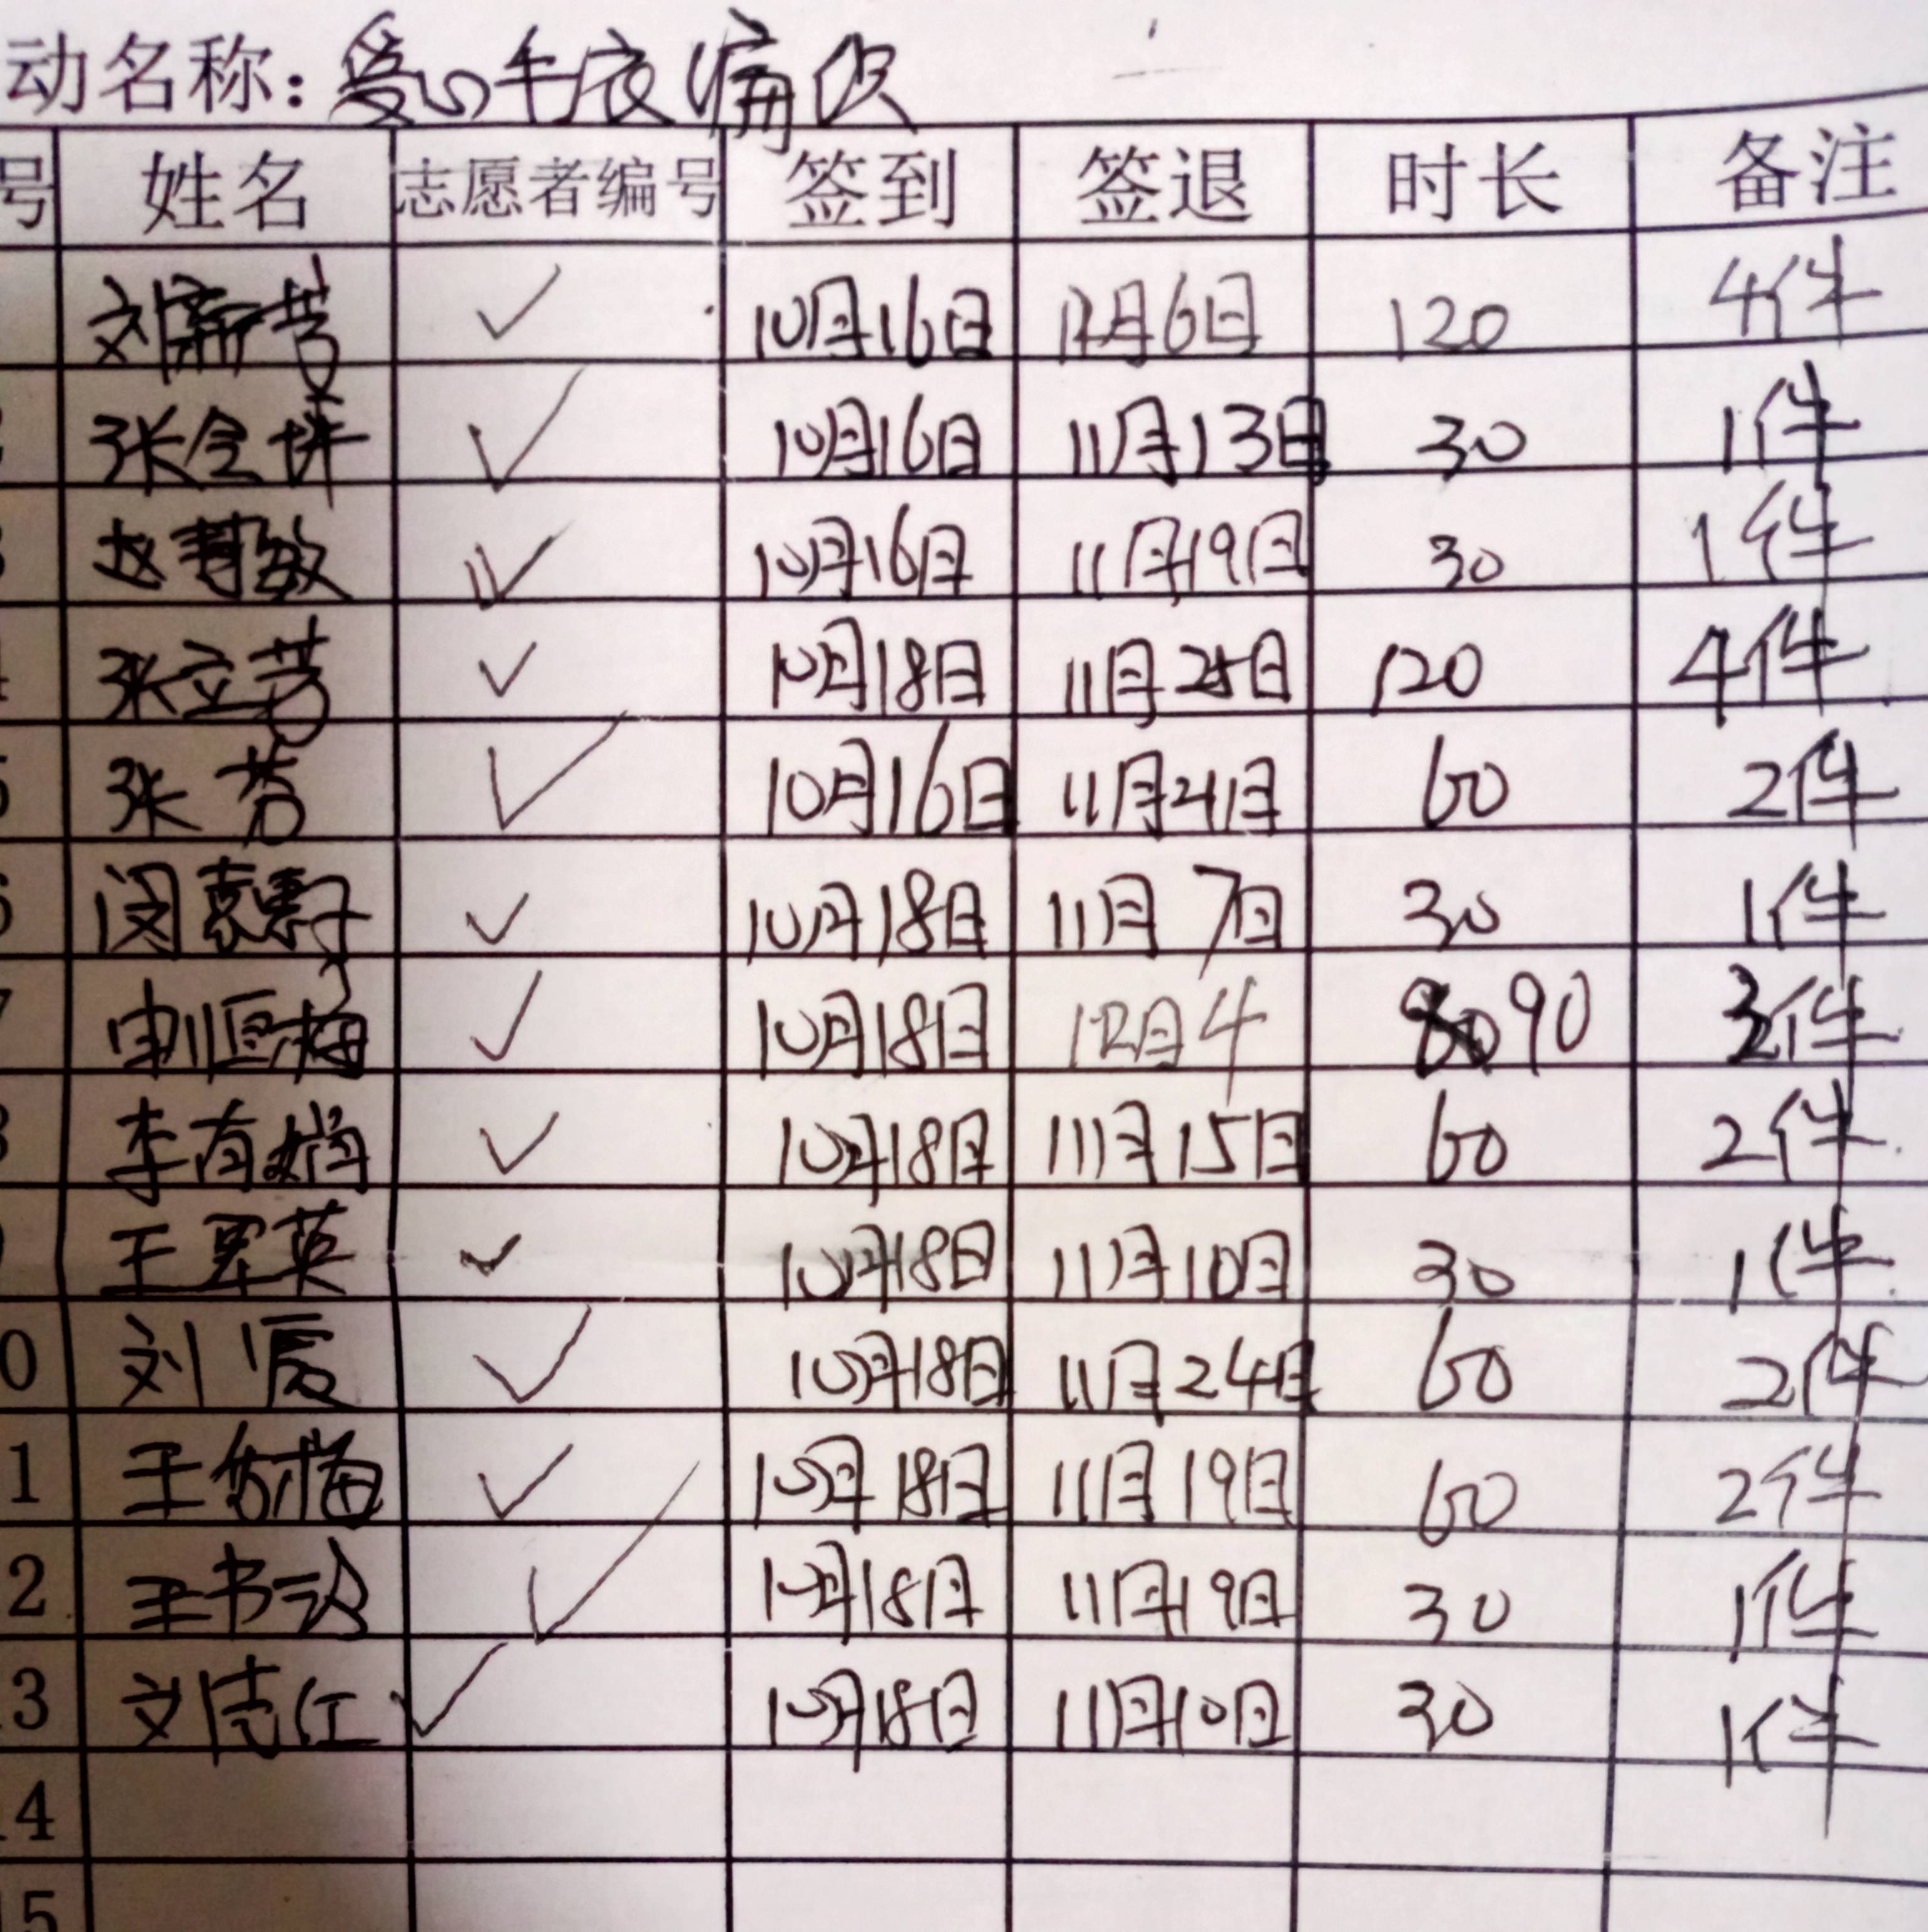 动名称：爱心毛衣编织
号 姓名 志愿者编号 签到 签退 时长 备注
刘新芳 ✓ 10月16日 12月6日 120 4件
张全 ✓ 10月16日 11月13日 30 1件
赵慧敏 ✓ 10月16日 11月19日 30 1件
张立芳 ✓ 10月18日 11月25日 120 4件
5 张芳 ✓ 10月16日 11月21日 60 2件
闵惠子 ✓ 10月18日 11月7日 30 1件
7 申恒梅 ✓ 10月18日 12月4 90 3件
李有娟 ✓ 10月18日 11月15日 60 2件
王翠英 ✓ 10月18日 11月10日 30 1件
0 刘 ✓ 10月18日 11月24日 60 2件
1 王梅 ✓ 10月18日 11月19日 60 2件
2 王书 ✓ 10月18日 11月19日 30 1件
3 文红 ✓ 10月18日 11月10日 30 1件
4
5